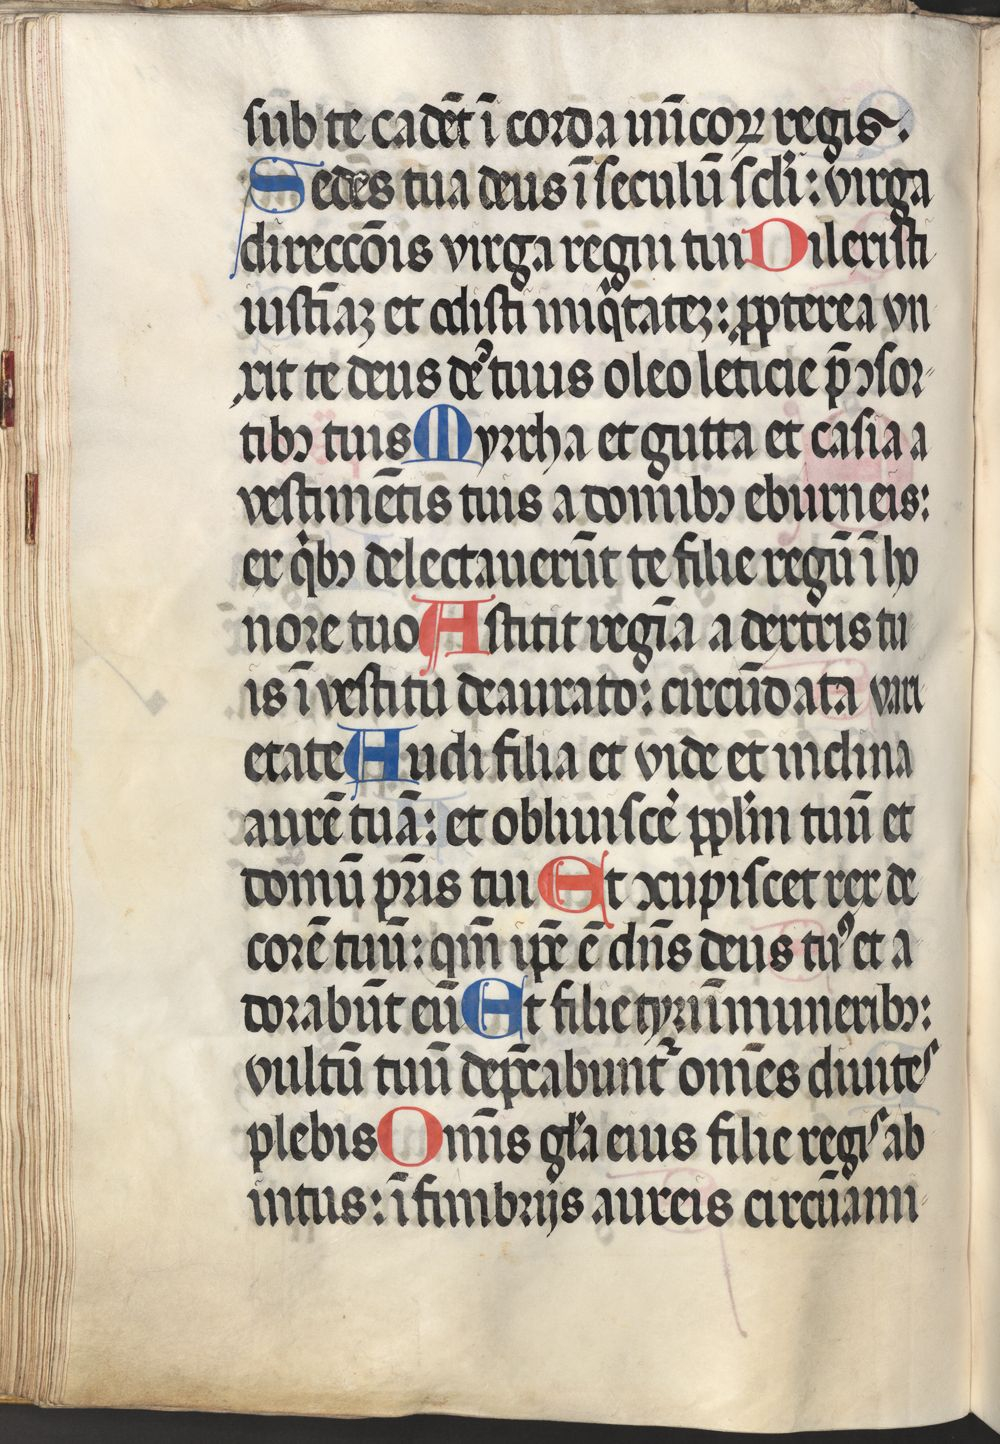 sub te cadēt ī corda inīcoꝝ regis.
Sedes tua deus ī seculū scl̄i: virga
direccōis virga regni tui Dilexisti
iusticiaꝫ et odisti iniqͥtateꝫ: ꝓpterea vn
xit te deus deꝰ tuus oleo leticie p̄ ꝯsor⸗
tibꝫ tuis Myrrha et gutta et casia a
vestimētis tuis a domibꝫ eburneis:
ex qͥbꝫ delectauerūt te filie regū ī ho
nore tuo Astitit regīa a dextris tu
is ī vestitu deaurato: circūdata vari
etate Audi filia et vide et inclina
aurē tuā: et obliuiscē ppl̄m tuū et
domū pr̄is tui Et ꝯcupiscet rex de
corē tuū: qm̄ ip̄e ē dn̄s deus tuꝰ et a
dorabūt eū Et filie tyri ī muneribꝫ:
vultū tuū dep̄cabuntͬ om̄es diuites
plebis Om̄is gl̄a eius filie regis ab
intus: ī fimbrijs aureis circūami⸗